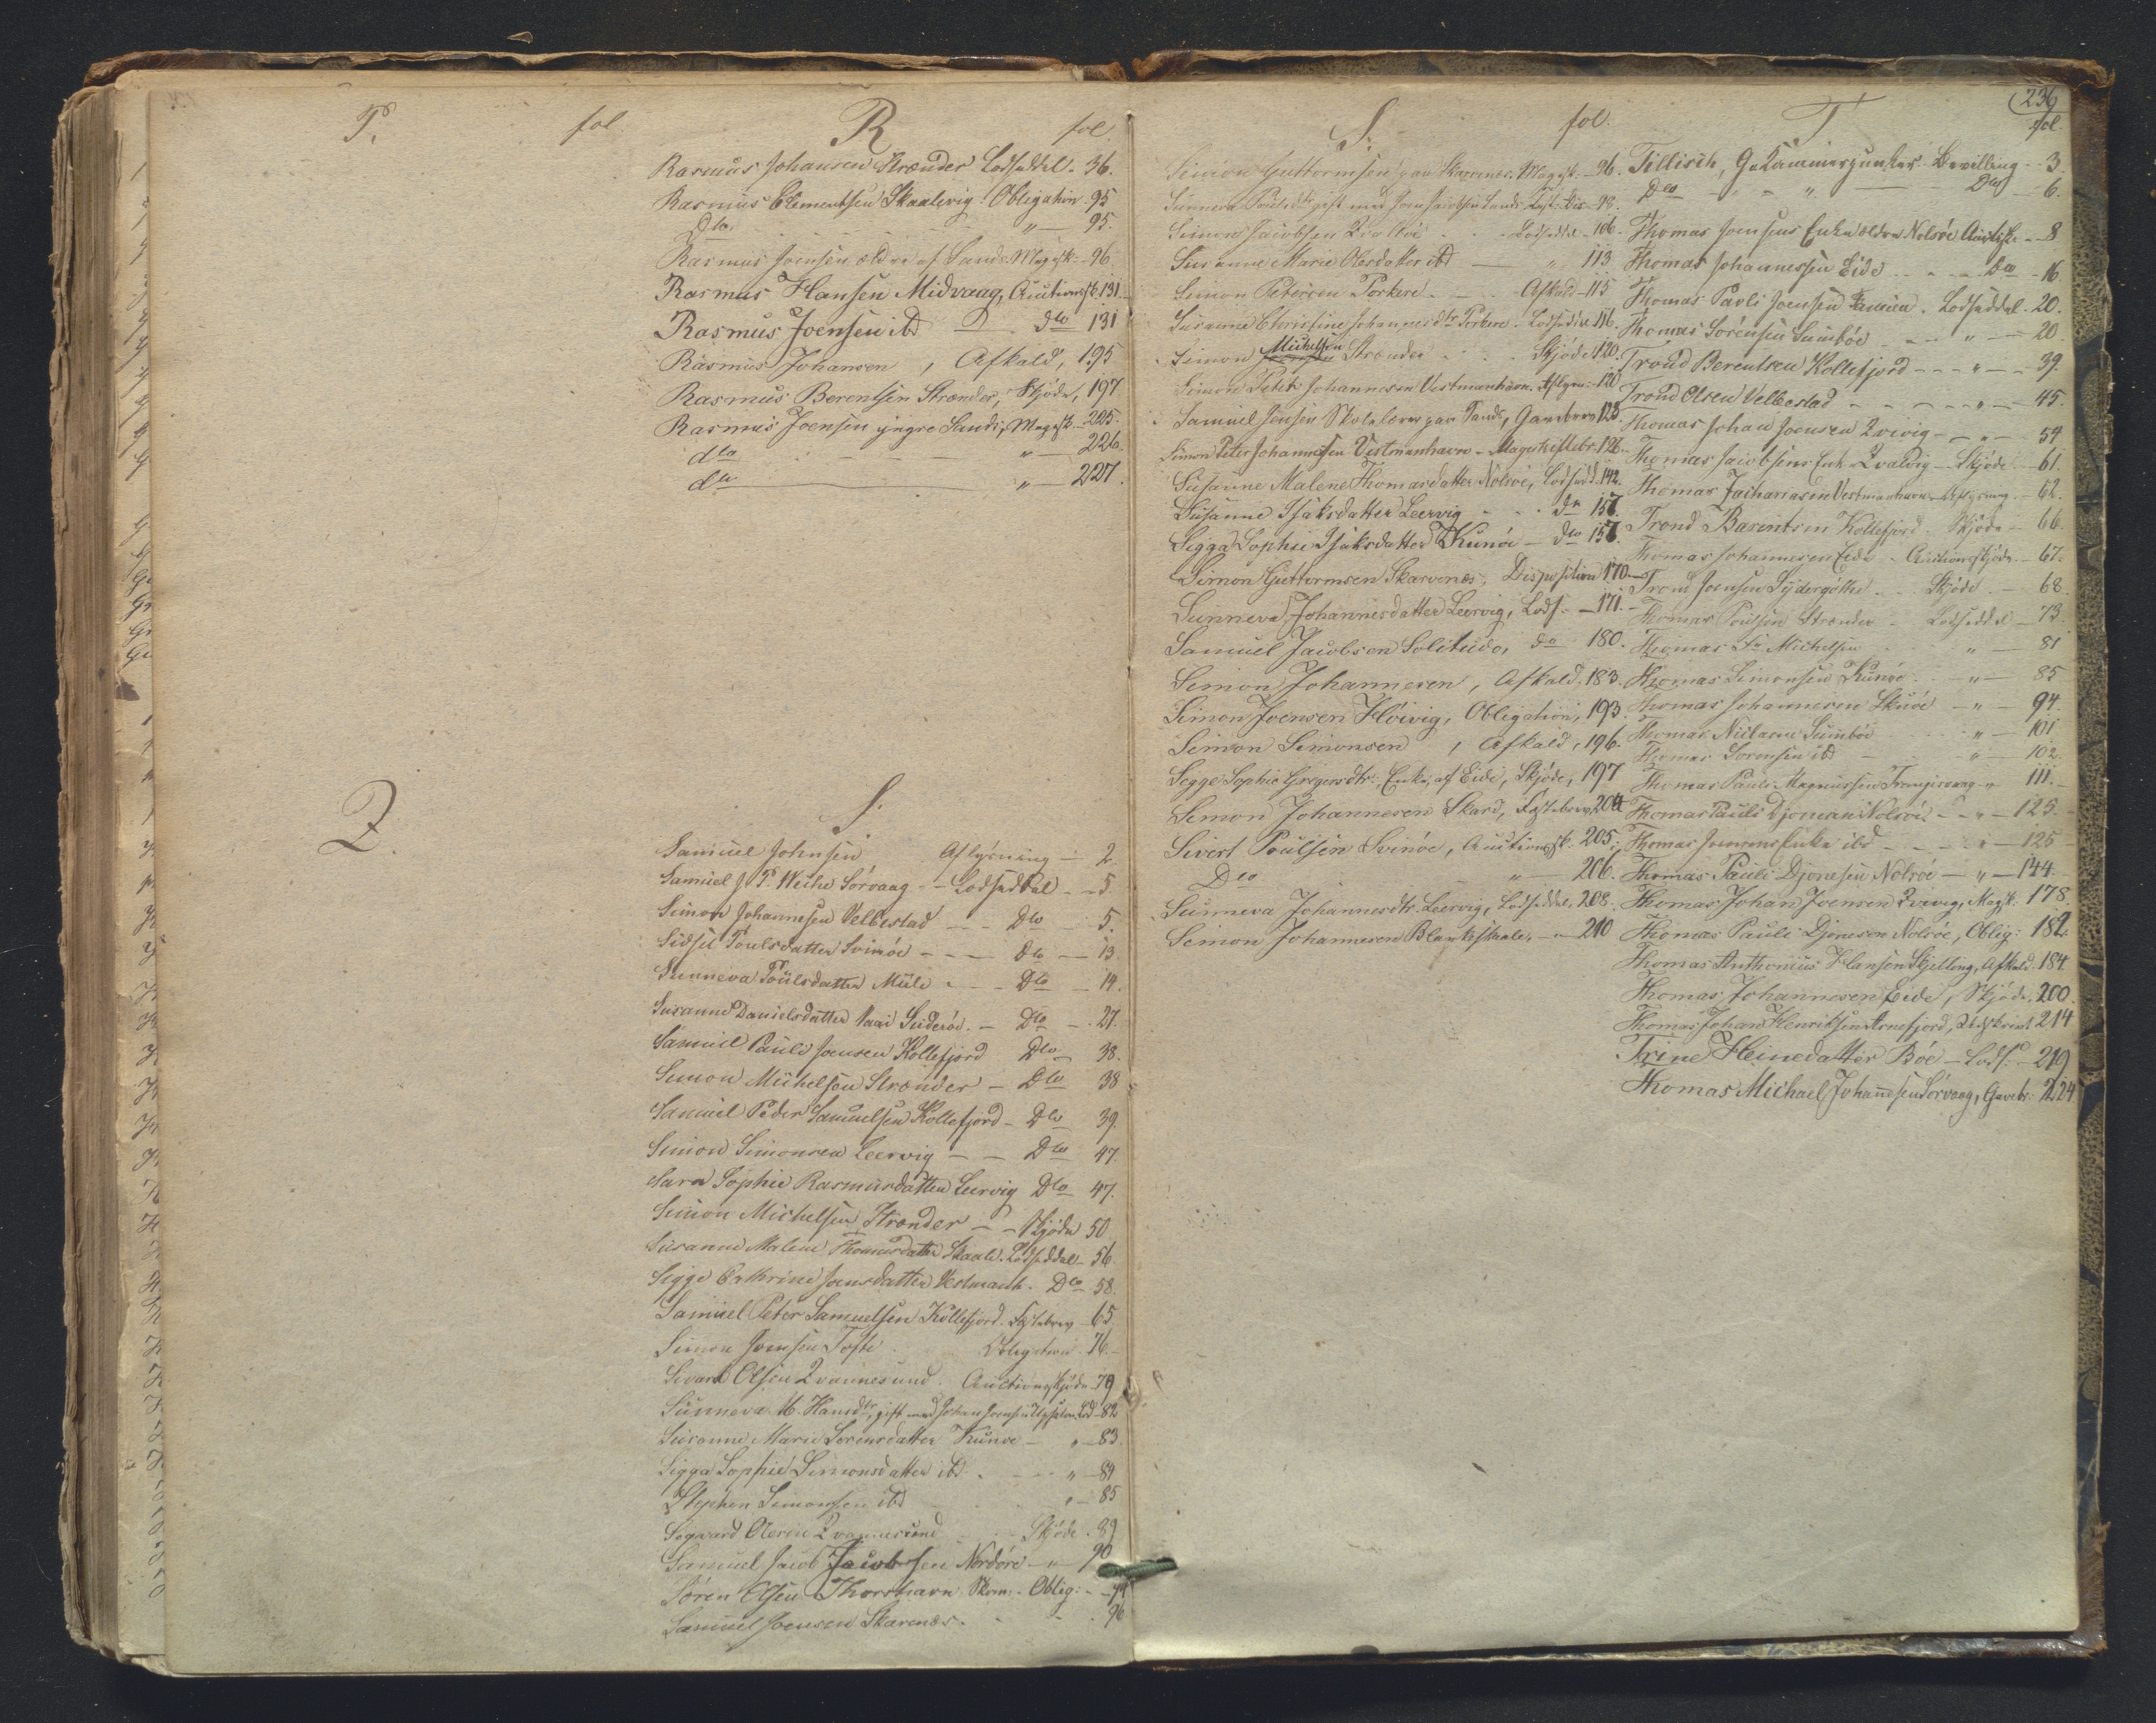 P. fol.
Q.
R fol.
Rasmus Johansen Strænder Lodseddel - 36.
Rasmus Clementsen Skaalevig Obligation 95
Dto " - 95.
Rasmus Joensen ældre af Sand Magesk. - 96
Rasmus Hansen Midvaag, Auctionssk. 131
Rasmus Joensen ibd dto 131
Rasmus Johansen , Afkald, 195
Rasmus Berentsen Strænder, Skjøde, 197
Rasmus Joensen yngre Sand, Magesk. - 225.
dto " - 226.
dto " - 227.
S.
Samuel Johnsen Aflysning - 2.
Samuel J. P. Weihe Sørvaag - - Lodseddel - 5
Simon Johannesen Velbestad - - Dto 5.
Sidsel Poulsdatter Svinøe - - - Dto - 13
Sunneva Poulsdatter Mule - - Dto - 14.
Susanne Danielsdatter Vaai Suderøe. - Dto - 27.
Samuel Pauli Joensen Kollefjord Dto - 38.
Simon Michelsen Strænder - Dto 38
Samuel Peder Samuelsen Kollefjord - Dto 39.
Simon Simonsen Leervig - - Dto 47.
Sara Sophie Rasmusdatter Leervig Dto 47.
Simon Michelsen Strænder - - Skjøde 50
Susanne Malene Thomasdatter Skaale. Lodseddel - 56
Sigge Cathrine Joensdatter Vestmanh. Dto 58.
Samuel Peter Samuelsen Kollefjord. Fæstebrev - 65.
Simon Joensen Tofte Obligation 76.
Sivard Olsen Qvannesund. Auctionsskjøde 79
Sunneva M. Hansdtr, gift med Johan Joensen - 82
Susanne Marie Sorensdatter Kunøe - " - 83.
Sigga Sophie Simonsdatter ibd. - - " - 84
Stephen Simonsen ibd " - 85
Sigvard Olsen Qvannesund Skjøde - 89
Samuel Jacob Jacobsen Nordøre - " - 90
Søren Olsen Thorshavn Skom. - Oblig: - 94
Samuel Joensen Skarenæs. - - - 96
S. fol.
Simon Guttormsen paa Skarenæs. Magesk. - 96.
Sunneva Poulsdtr gift med Joen Jacobsen Sand. 98.
Simon Jacobsen Qvalbøe - - Lodseddel - 106.
Susanne Marie Olesdatter ibd - " 113
Simon Petersen Porkere - - Afkald - 115
Susanne Christine Johannesdtr Porkere - Lodseddel 116.
Simon Joensen Michelsen Strænder - - Skjøde 120.
Simon Peter Johannesen Vestmanhavn. Aflysn: 120
Samuel Jensen Skolelærer paa Sand, Gavebrev 125.
Simon Peter Johannesen Vestmanhavn - Mageskiftebr. 126.
Susanne Malene Thomasdatter Nolsøe, Lodsedd. 142.
Susanne Isaksdatter Leervig - - do 157.
Sigga Sophie Isaksdatter Kunøe - do 157.
Simon Guttormsen Skarenæs, Disposition 170.
Sunneva Johannesdatter Leervig, Lods. - 171.
Samuel Jacobsen Solitude, do 180.
Simon Johannesen , Afkald. 183.
Simon Joensen Høivig, Obligation, 193.
Simon Simonsen , Afkald, 196.
Segge Sophie Gregersdtr: Enke, af Eide, Skjøde, 197
Simon Johannesen Skard, Fæstebrev, 204
Sivert Poulsen Svinøe, Auctionssk. 205
Dto " - 206.
Sunneva Johannesdtr. Leervig, Lodseddel, 208.
Simon Johannesen Blankskaale, - " 210
T 236 fol.
Tillisch, G. Kammerjunker. Bevilling - 3
Dto - - " - Dto 6.
Thomas Joensens Enke ældre Nolsøe Auctsk. - 8
Thomas Johannesen Eide - - - do - 16
Thomas Pauli Joensen Famien. Lodseddel. 20.
Thomas Sørensen Sumbøe - - " - 20
Trond Berentsen Kollefjord - - - " - 39.
Trond Olsen Velbestad - - - " - 45.
Thomas Johan Joensen Qvivig - " - 54
Thomas Jacobsens Enke Qvalvig - Skjøde - 61.
Thomas Zachariasen Vestmanhavn. Aflysning - 62.
Trond Barentsen Kollefjord Skjøde - 66
Thomas Johannesen Eide - Auctionsskjøde - 67.
Trond Joensen Sydergøthe - Skjøde - 68
Thomas Poulsen Strænder - Lodseddel - 73
Thomas Michelsen " - 81
Thomas Simonsen Kunøe - " - 85
Thomas Johannesen Skuøe - " - 94
Thomas Niclasen Sumbøe " - 101
Thomas Sorensen ibd " - 102
Thomas Pauli Magnussen Trangisvaag - " 111.
Thomas Pauli Djonesen Nolsøe - - " - 125.
Thomas Joensens Enke ibd - - " - 125
Thomas Pauli Djonesen Nolsøe - " - 144.
Thomas Johan Joensen Qvivig, Magsk. 178.
Thomas Pauli Djonesen Nolsøe, Oblig: 182
Thomas Anthonius Hansen Skjelling, Afkald. 184.
Thomas Johannesen Eide, Skjøde, 200.
Thomas Johan Henriksen Arnefjord, Udskrivt 214
Trine Heinedatter Bøe - Lods. - 219
Thomas Michael Johannesen Sørvaag, Gavebr. 224